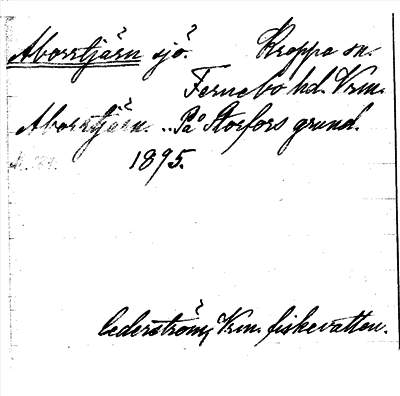 Aborrtjärn sjö. Kroppa sn.
Fernebo hd. Vrm.
Aborrtjärn. "På Storfors grund.
1895.
Cederström, Vrm. fiskevatten.